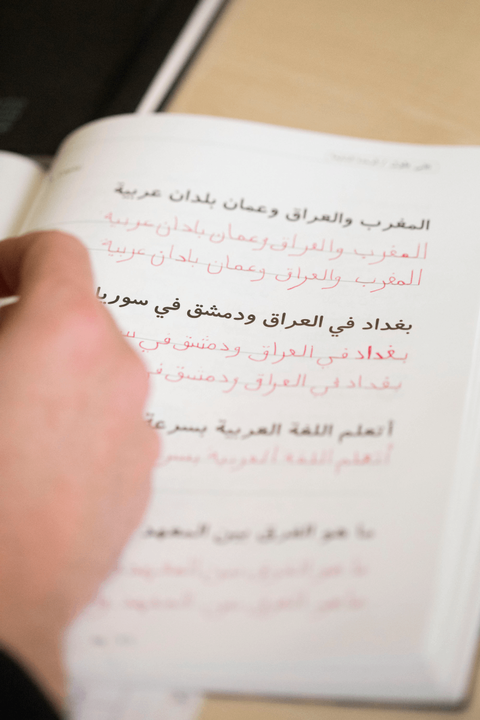 المغرب والعراق وعمان بلدان عربية
المغرب والعراق وعمان بلدان عربية
المغرب والعراق وعمان بلدان عربية
بغداد في العراق ودمشق في سوريا
بغداد في العراق ودمشق في
بغداد في العراق ودمشق في
أتعلم اللغة العربية بسرعة
أتعلم اللغة العربية
ما هو الفرق بين المعهد
ما هو الفرق بين المعهد
ما هو الفرق بين المعهد